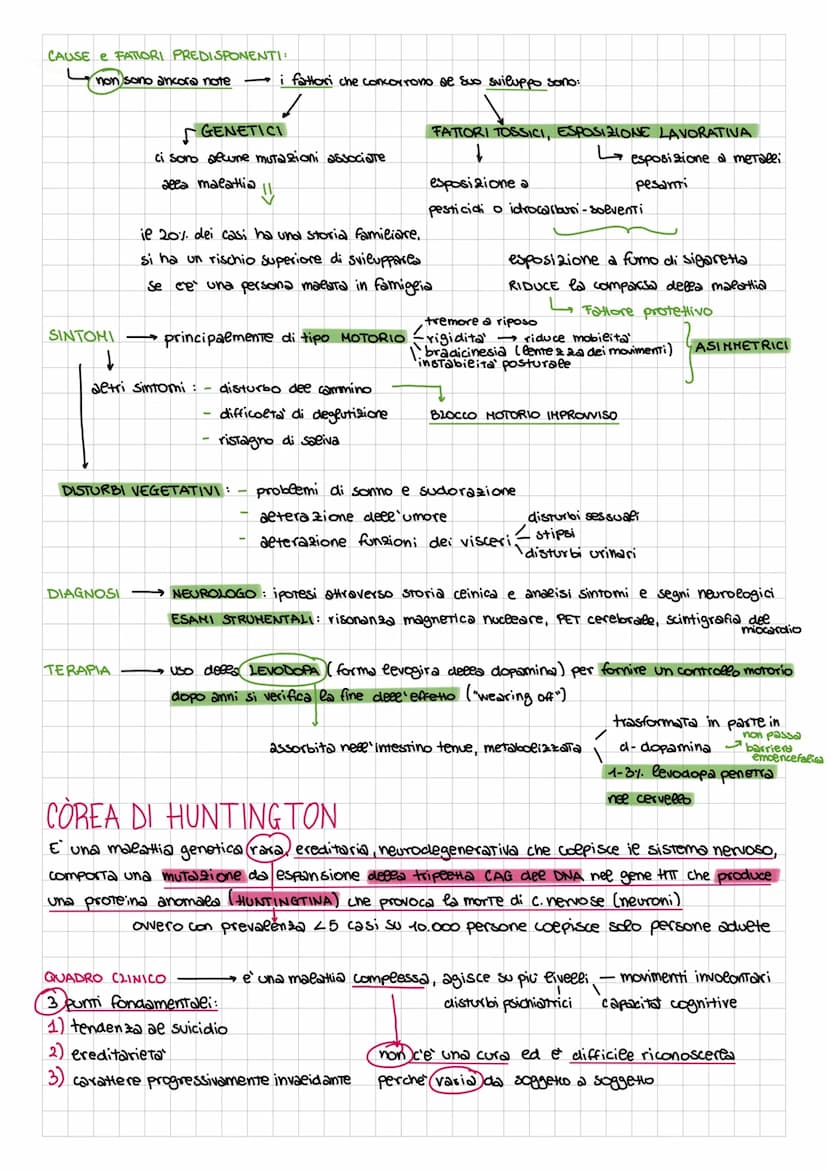 CAUSE e FATTORI PREDISPONENTI:
non sono ancora note → i fattori che concorrono al suo sviluppo sono:
GENETICI
FATTORI TOSSICI, ESPOSIZIONE LAVORATIVA
ci sono alcune mutazioni associate
alla malattia
esposizione a metalli
pesanti
esposizione a
pesticidi o idrocarburi-solventi
il 20% dei casi ha una storia familiare,
si ha un rischio superiore di svilupparla
se c'è una persona malata in famiglia
esposizione a fumo di sigaretta
RIDUCE la comparsa della malattia
Fattore protettivo
SINTOMI → principalmente di tipo MOTORIO
tremore a riposo
rigidità → riduce mobilità
bradicinesia (lentezza dei movimenti)
instabilità posturale
ASIMMETRICI
altri sintomi: - disturbo del cammino
- difficoltà di deglutizione
- ristagno di saliva
BLOCCO MOTORIO IMPROVVISO
DISTURBI VEGETATIVI: - problemi di sonno e sudorazione
- alterazione dell'umore
- alterazione funzioni dei visceri
disturbi sessuali
stipsi
disturbi urinari
DIAGNOSI → NEUROLOGO: ipotesi attraverso storia clinica e analisi sintomi e segni neurologici
ESAMI STRUMENTALI: risonanza magnetica nucleare, PET cerebrale, scintigrafia del
miocardio
TERAPIA → uso della LEVODOPA (forma levogira della dopamina) per fornire un controllo motorio
dopo anni si verifica la fine dell'effetto ("wearing off")
assorbita nell'intestino tenue, metabolizzata
trasformata in parte in
d-dopamina → non passa
barriera
emoencefalica
1-3% levodopa penetra
nel cervello
CÒREA DI HUNTINGTON
E' una malattia genetica rara, ereditaria, neurodegenerativa che colpisce il sistema nervoso,
comporta una mutazione da espansione della tripletta CAG del DNA nel gene HTT che produce
una proteina anomala (HUNTINGTINA) che provoca la morte di c. nervose (neuroni)
ovvero con prevalenza <5 casi su 10.000 persone colpisce solo persone adulte
QUADRO CLINICO → e' una malattia complessa, agisce su più livelli
movimenti involontari
disturbi psichiatrici
capacità cognitive
3 punti fondamentali:
1) tendenza al suicidio
2) ereditarietà
3) carattere progressivamente invalidante
non c'è una cura ed è difficile riconoscerla
perché varia da soggetto a soggetto